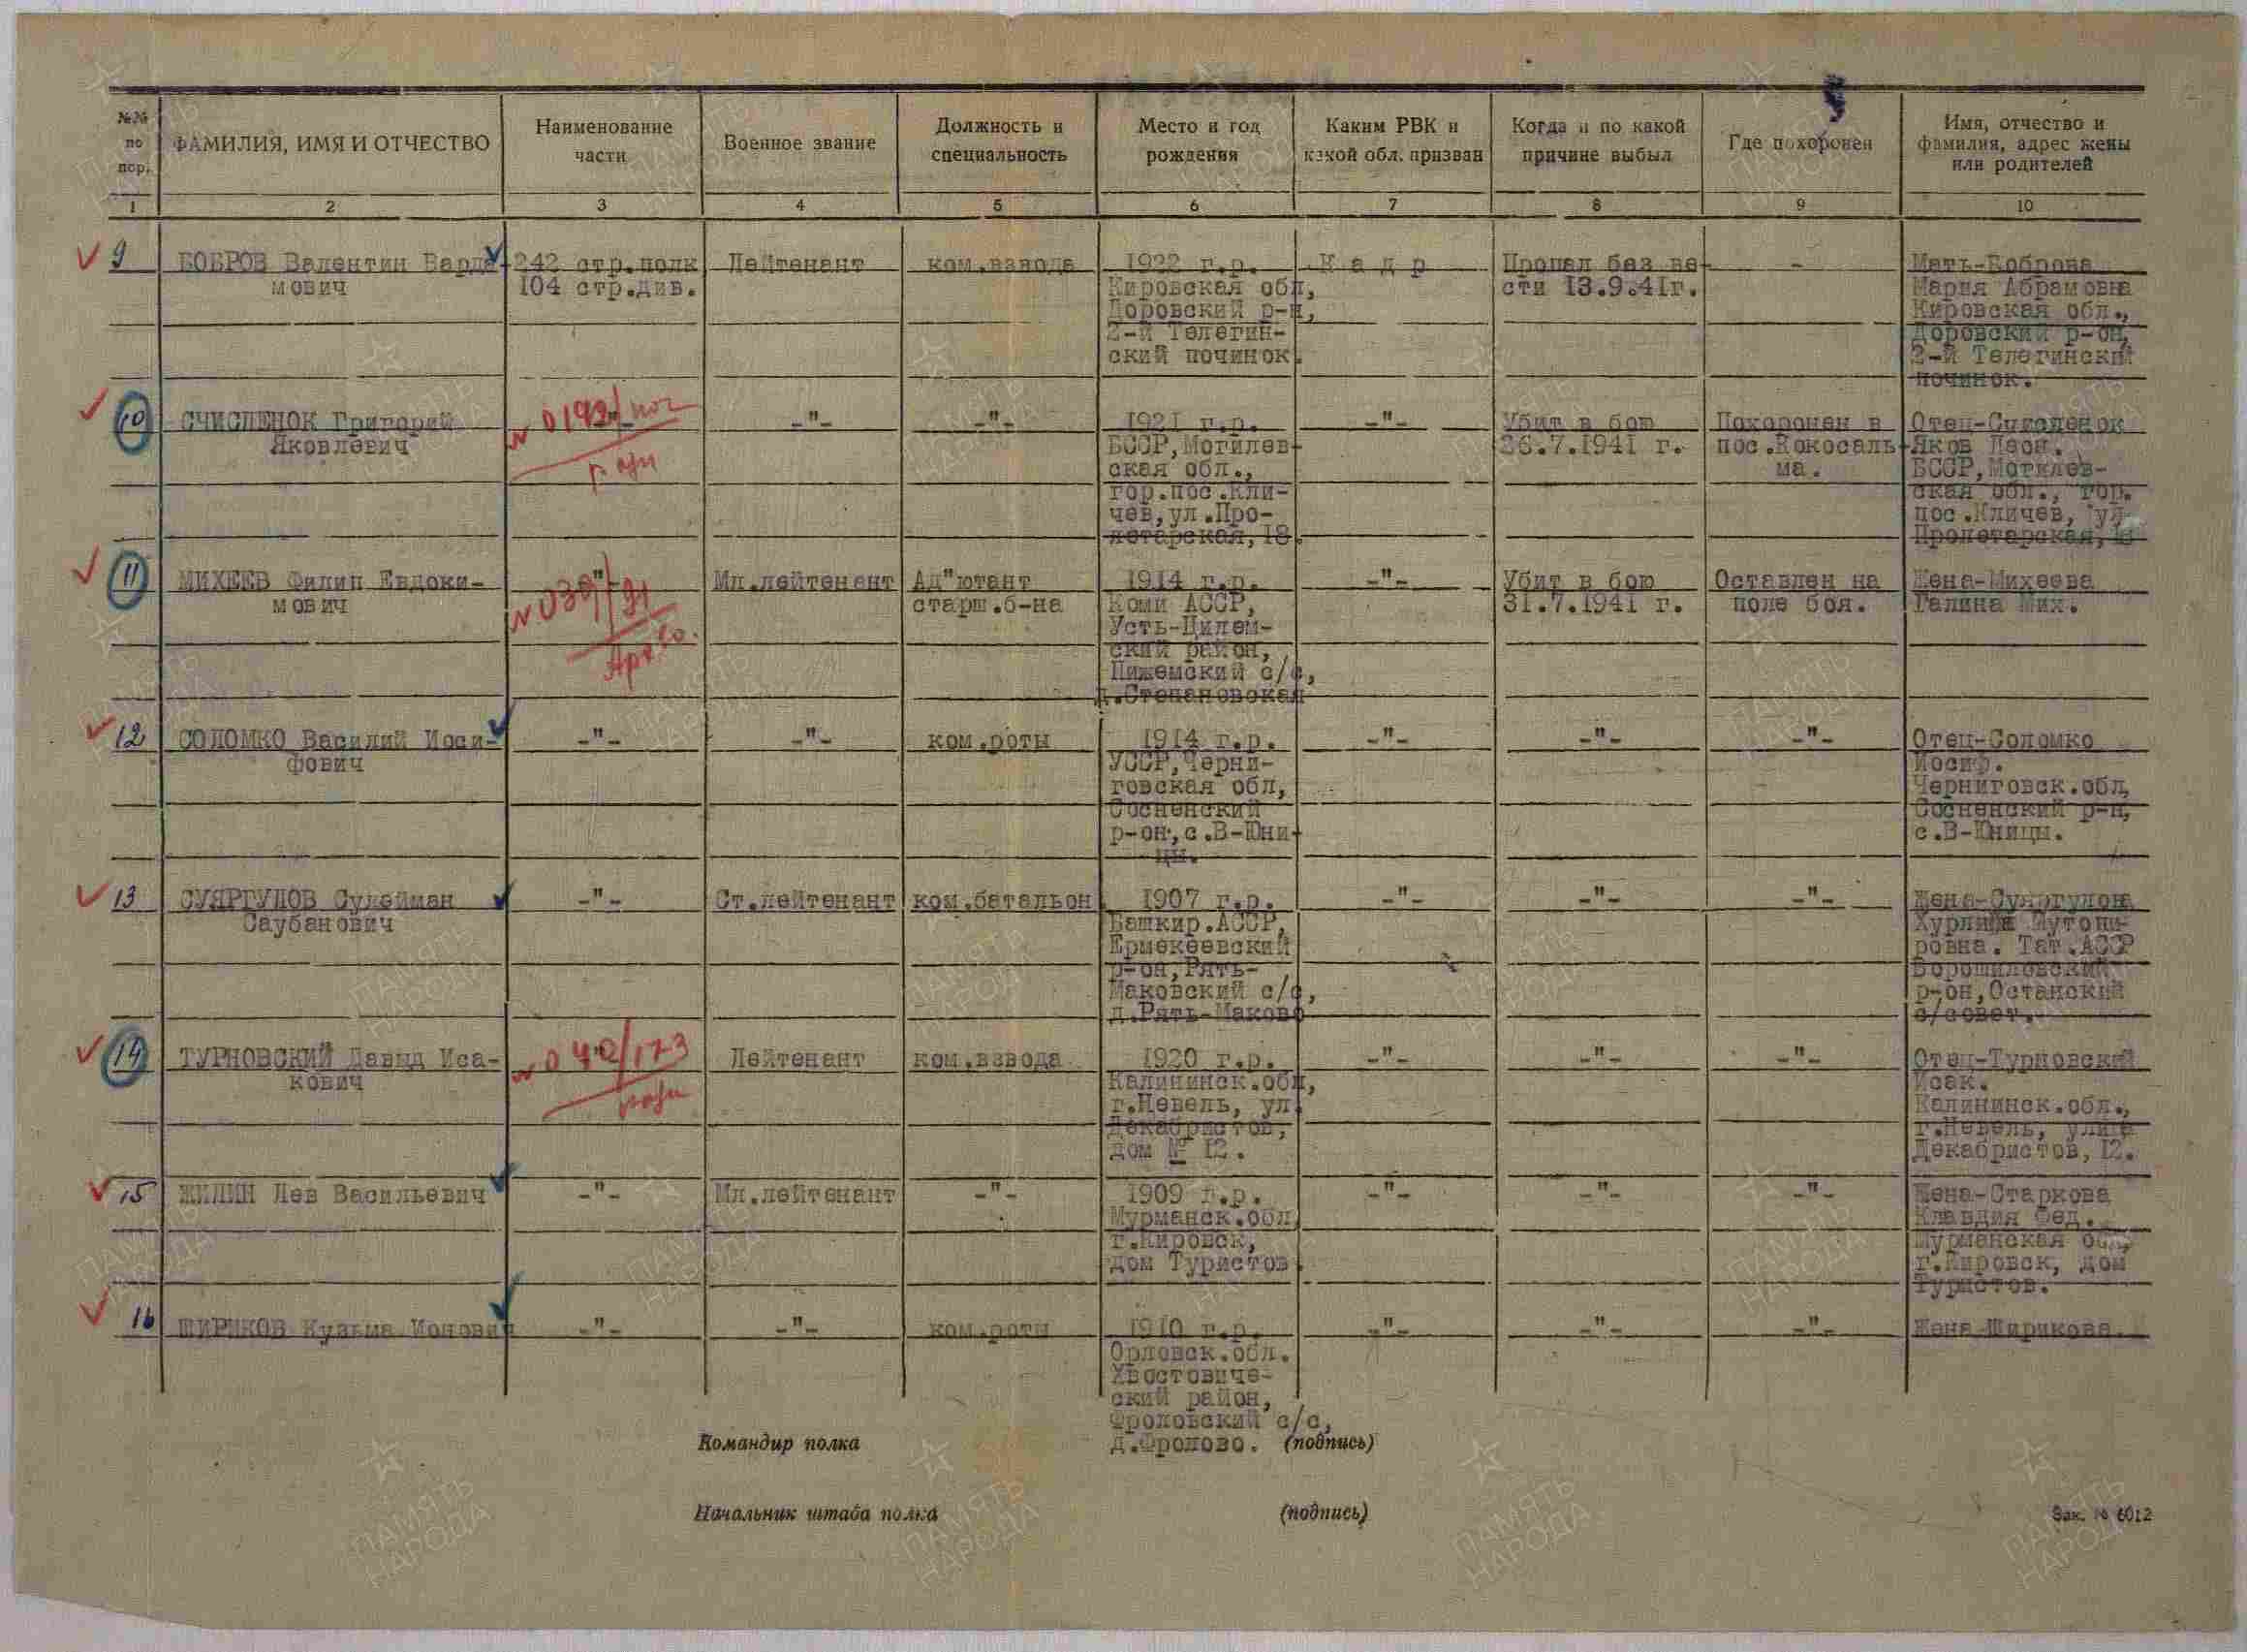 №№ по пор.
ФАМИЛИЯ, ИМЯ И ОТЧЕСТВО
Наименование части
Военное звание
Должность и специальность
Место и год рождения
Каким РВК и какой обл. призван
Когда и по какой причине выбыл
Где похоронен
Имя, отчество и фамилия, адрес жены или родителей
1 2 3 4 5 6 7 8 9 10
9
БОБРОВ Валентин Варла-
мович
242 стр.полк
104 стр.див.
Лейтенант
ком.взвода
1922 г.р.
Кировская обл,
Доровский р-н,
2-й Телегин-
ский починок.
К а д р
Пропал без ве-
сти 13.9.41г.
-
Мать-Боброва
Мария Абрамовна
Кировская обл.,
Доровский р-он,
2-й Телегинский
починок.
10
СЧИСЛЕНОК Григорий
Яковлевич
-"-
-"-
-"-
1921 г.р.
БССР,Могилев-
ская обл.,
гор.пос.Кли-
чев,ул.Про-
летарская,18.
-"-
Убит в бою
26.7.1941 г.
Похоронен в
пос.Кокосаль-
ма.
Отец-Счисленок
Яков Леон.
БССР,Могилев-
ская обл., гор.
пос.Кличев, ул
Пролетарская,18
11
МИХЕЕВ Филип Евдоки-
мович
-"-
Мл.лейтенант
Ад"ютант
старш.б-на
1914 г.р.
Коми АССР,
Усть-Цилем-
ский район,
Пижемский с/с,
д.Степановская
-"-
Убит в бою
31.7.1941 г.
Оставлен на
поле боя.
Жена-Михеева
Галина Мих.
12
СОЛОМКО Василий Иоси-
фович
-"-
-"-
ком.роты
1914 г.р.
УССР,Черни-
говская обл,
Сосненский
р-он,с.В-Юни-
цы.
-"-
-"-
-"-
Отец-Соломко
Иосиф.
Черниговск.обл,
Сосненский р-н,
с.В-Юницы.
13
СУЯРГУЛОВ Сулейман
Саубанович
-"-
Ст.лейтенант
ком.батальон.
1907 г.р.
Башкир.АССР,
Ермекеевский
р-он,Рять-
Маковский с/с,
д.Рять-Маково
-"-
-"-
-"-
Жена-Суяргулова
Мутоги-
ровна. Тат.АССР
Ворошиловский
р-он,Останский
с/совет.
14
ТУРНОВСКИЙ Давыд Иса-
кович
№ 040/173
-"-
Лейтенант
ком.взвода
1920 г.р.
Калининск.обл,
г.Невель, ул.
Декабристов,
дом № 12.
-"-
-"-
-"-
Отец-Турновский
Исак.
Калининск.обл.,
г.Невель, улица
Декабристов,12.
15
ЖИЛИН Лев Васильевич
-"-
Мл.лейтенант
-"-
1909 г.р.
Мурманск.обл,
г.Кировск,
дом Туристов.
-"-
-"-
-"-
Жена-Старкова
Клавдия Фед.
Мурманская обл,
г.Кировск, дом
Туристов.
16
ШИРИКОВ Кузьма Ионович
-"-
-"-
ком.роты
1910 г.р.
Орловск.обл.
Хвостовиче-
ский район,
Фроловский с/с,
д.Фролово.
-"-
-"-
-"-
Жена-Ширикова.
Командир полка (подпись)
Начальник штаба полка (подпись)
Зак. № 6012
ПАМЯТЬ НАРОДА